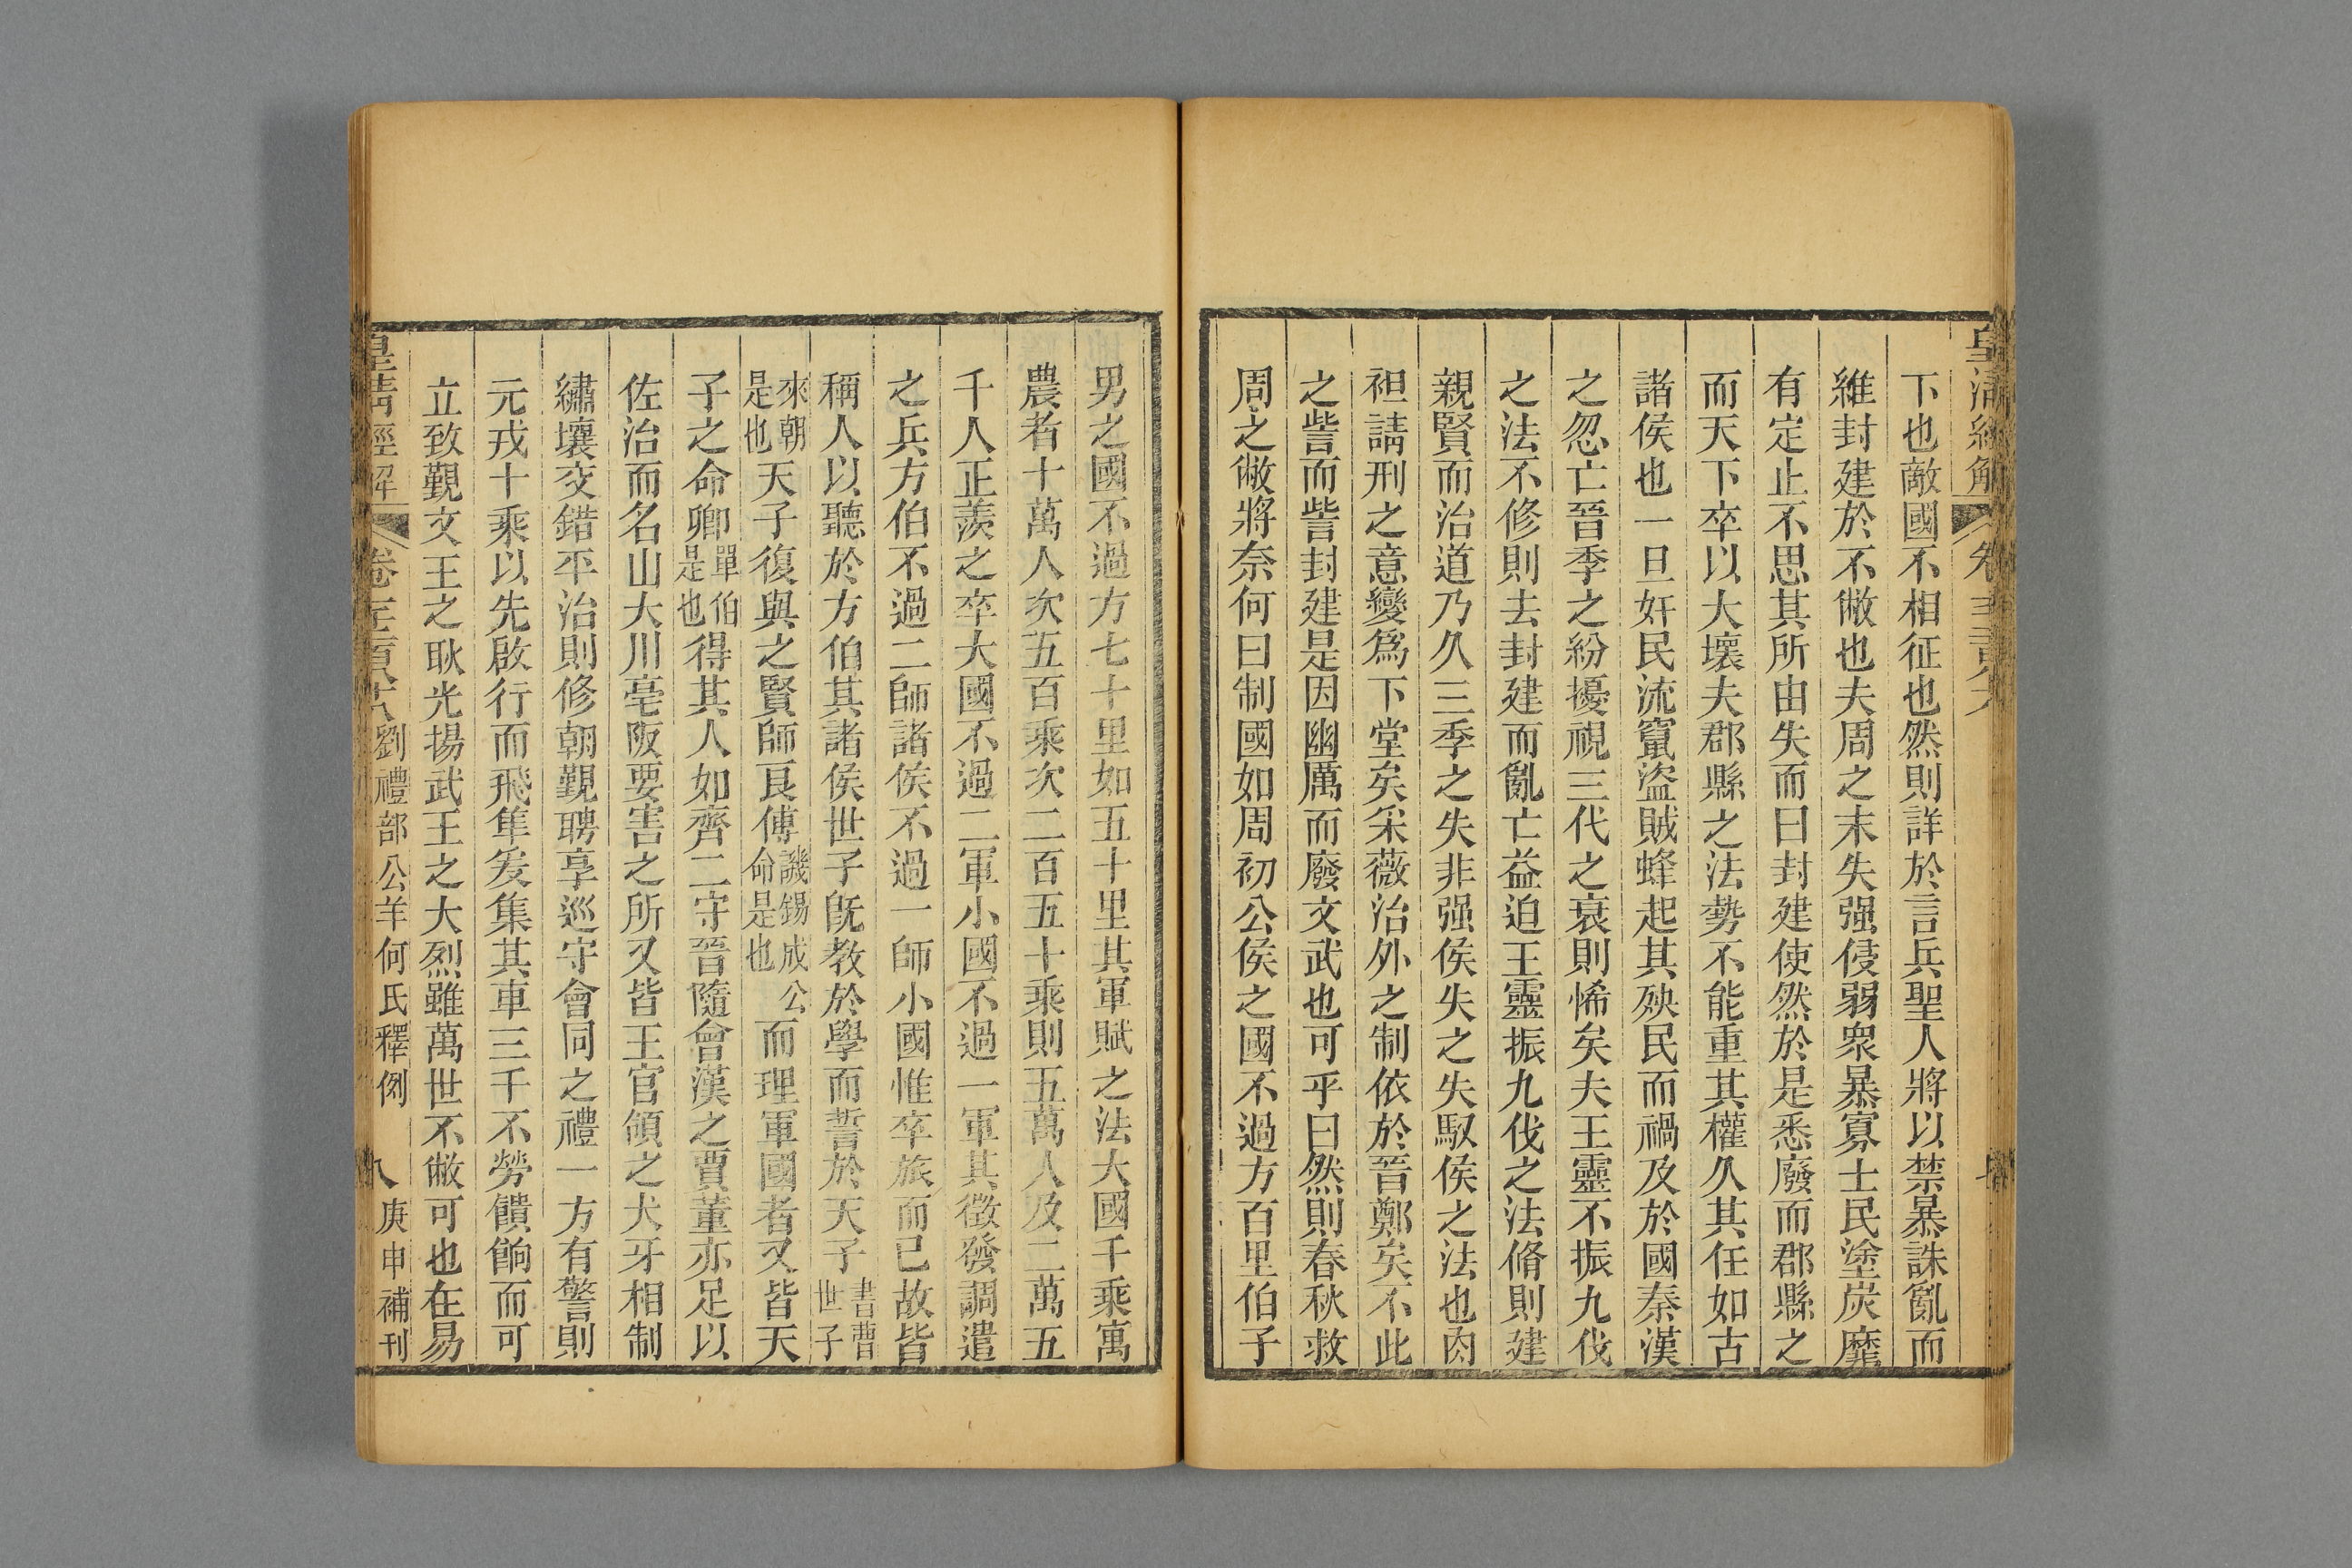 皇清經解
下也敵國不相征也然則詳於言兵聖人將以禁暴誅亂而
維封建於不敝也夫周之末失强侵弱衆暴寡士民塗炭靡
有定止不思其所由失而曰封建使然於是悉廢而郡縣之
而天下卒以大壞夫郡縣之法勢不能重其權久其任如古
諸侯也一旦奸民流竄盜賊蜂起其殃民而禍及於國秦漢
之忽亡晉季之紛擾視三代之衰則悕矣夫王靈不振九伐
之法不修則去封建而亂亡益迫王靈振九伐之法脩則建
親賢而治道乃久三季之失非强侯失之失馭侯之法也肉
袒請刑之意變爲下堂矣采薇治外之制依於晉鄭矣不此
之訾而訾封建是因幽厲而廢文武也可乎曰然則春秋救
周之敝將奈何曰制國如周初公侯之國不過方百里伯子
男之國不過方七十里如五十里其軍賦之法大國千乘寓
農者十萬人次五百乘次二百五十乘則五萬人及二萬五
千人正羨之卒大國不過二軍小國不過一軍其徵發調遣
之兵方伯不過二師諸侯不過一師小國惟卒旅而已故皆
稱人以聽於方伯其諸侯世子旣教於學而誓於天子書曹世子
來朝是也天子復與之賢師良傅譏錫成公命是也而理軍國者又皆天
子之命卿單伯是也得其人如齊二守晉隨會漢之賈董亦足以
佐治而名山大川亳阪要害之所又皆王官領之犬牙相制
繡壤交錯平治則修朝覲聘享巡守會同之禮一方有警則
元戎十乘以先啟行而飛隼爰集其車三千不勞饋餉而可
立致覲文王之耿光揚武王之大烈雖萬世不敝可也在易
皇清經解 卷 劉禮部公羊何氏釋例 八 庚申補刊